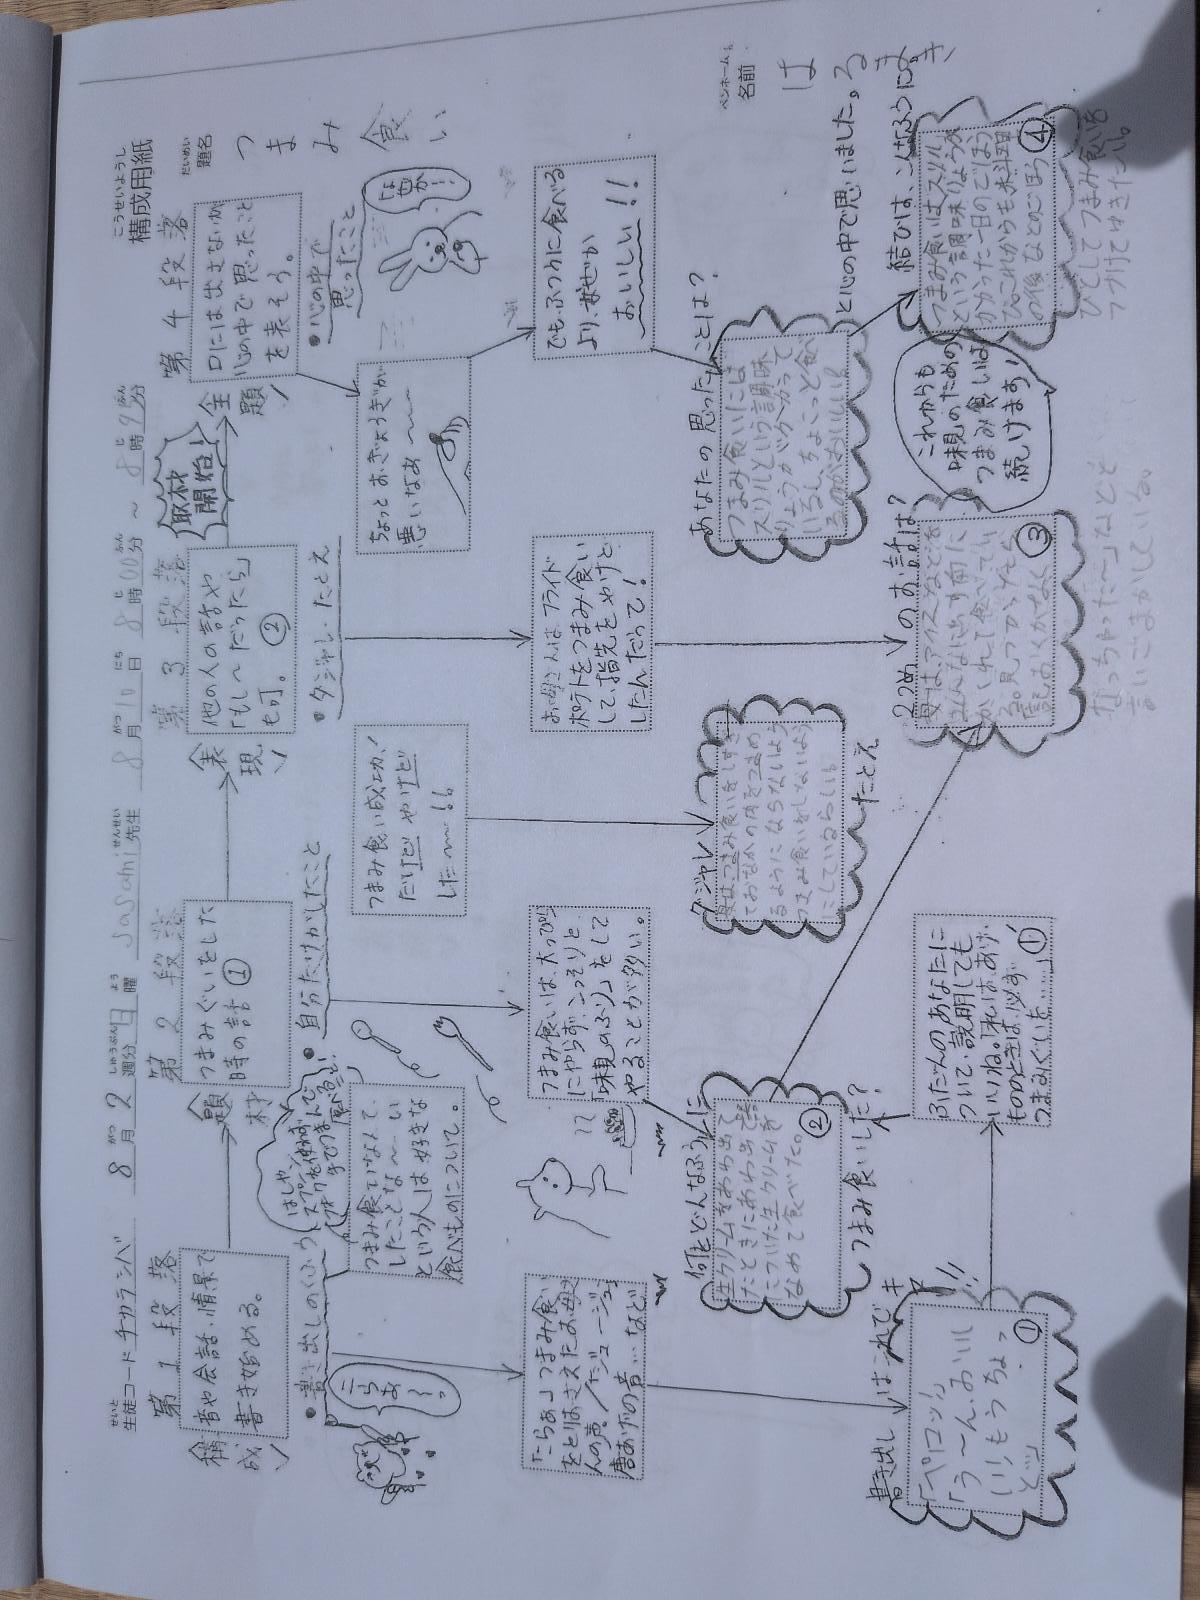 こうせいようし
構成用紙
せいと
生徒コード チカラシバ
がつ しゅうぶん よう せんせい
8月2週分 日曜 Sasami先生
がつ にち じ ふん じ ふん
8月10日 8時00分～8時45分
だいめい
題名 つまみ食い
ペンネームも
名前 はるまキ
第1段落
構成
音や会話・情景で
書き始める。
・書き出しのくふう
こらあ〜っ
「こらぁ」つまみ食い
をとりおさえたお母
さんの声／「ジュージュー」
唐あげの音…など
書き出しはこれで
キマリ!!
「ペロッ!」
「う〜ん、おいし
い!もうちょっ
と」 ①
題材
第2段落
つまみぐいをした
時の話 ①
・自分だけがしたこと
はしや
スプーンを使わず
手でつまんで
食べること
つまみ食いなんて、
したことな〜い
という人は好きな
食べものについて。
つまみ食いは、大っぴら
にやらず、こっそりと
「味見のふり」をして
やることが多い。
何をどんなふうに
つまみ食いした？
生クリームをあわ出て
たときにあわ出て器
についた生クリームを
なめて食べた。 ②
ふだんのあなたに
ついて、説明しても
いいね。「私は、あげ
もののときは、必ず
つまみぐいを……」 ①'
表現
第3段落
他の人の話や
「もし〜だったら」
も可。 ②
・ダジャレ・たとえ
つまみ食い成功、
だけど やけど
した〜!!
ダジャレ
たとえ
母は、つまみ食いをしすぎ
ておなかの肉をつまめ
るようにならないよう
つまみ食いをしないよう
にしているらしい。
お母さんは フライド
ポテトをつまみ食い
して、指先をやけど
したんだって！
2つめのお話は？
母は、アイスなどを
みんなに出す前に
かくれて食べてい
る。見つかっても
③
なっちゃった〜」などと
言いごまかしている。
取材
開始
主題
第4段落
口には出さないが
心の中で思ったこと
を表そう。
・心の中で
思ったこと
ちょっと おぎょうぎが
悪いなぁ〜〜〜
でも、ふつうに食べる
より、なぜか
おいしい!!
あなたの思ったことは？
と心の中で思いました。
つまみ食いには
スリルという調味
りょうがかかって
いるし、ちょこっと食べ
るのがおいしい。
結びは、こんなふうに。
つまみ食いはスリル
という調味りょうが
かかった一日のごほう
び。これからも お料理
の後などのごほう ④
びとしてつまみ食いを
つづけてゆきたい。
これからも
味見のための
つまみ食いは
続けます！